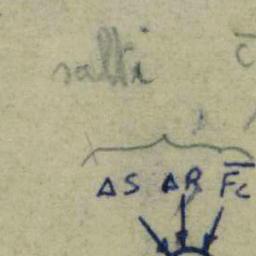 salti C̅
ΔS ΔR F̅c̅